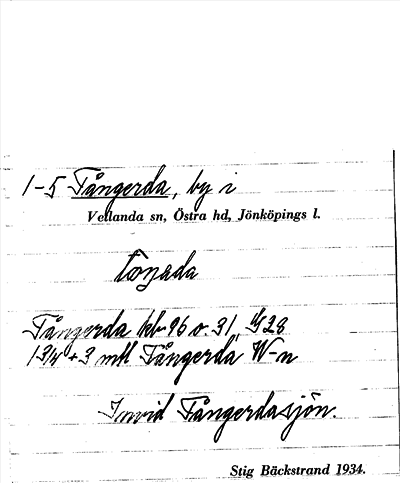 1-5 Tångerda, by i
Vetlanda sn, Östra hd, Jönköpings l.
Tångerda kb 96 o. 31,
1 3/4 + 3 mtl Tångerda W-n
Invid Tångerdasjön.
Stig Bäckstrand 1934.